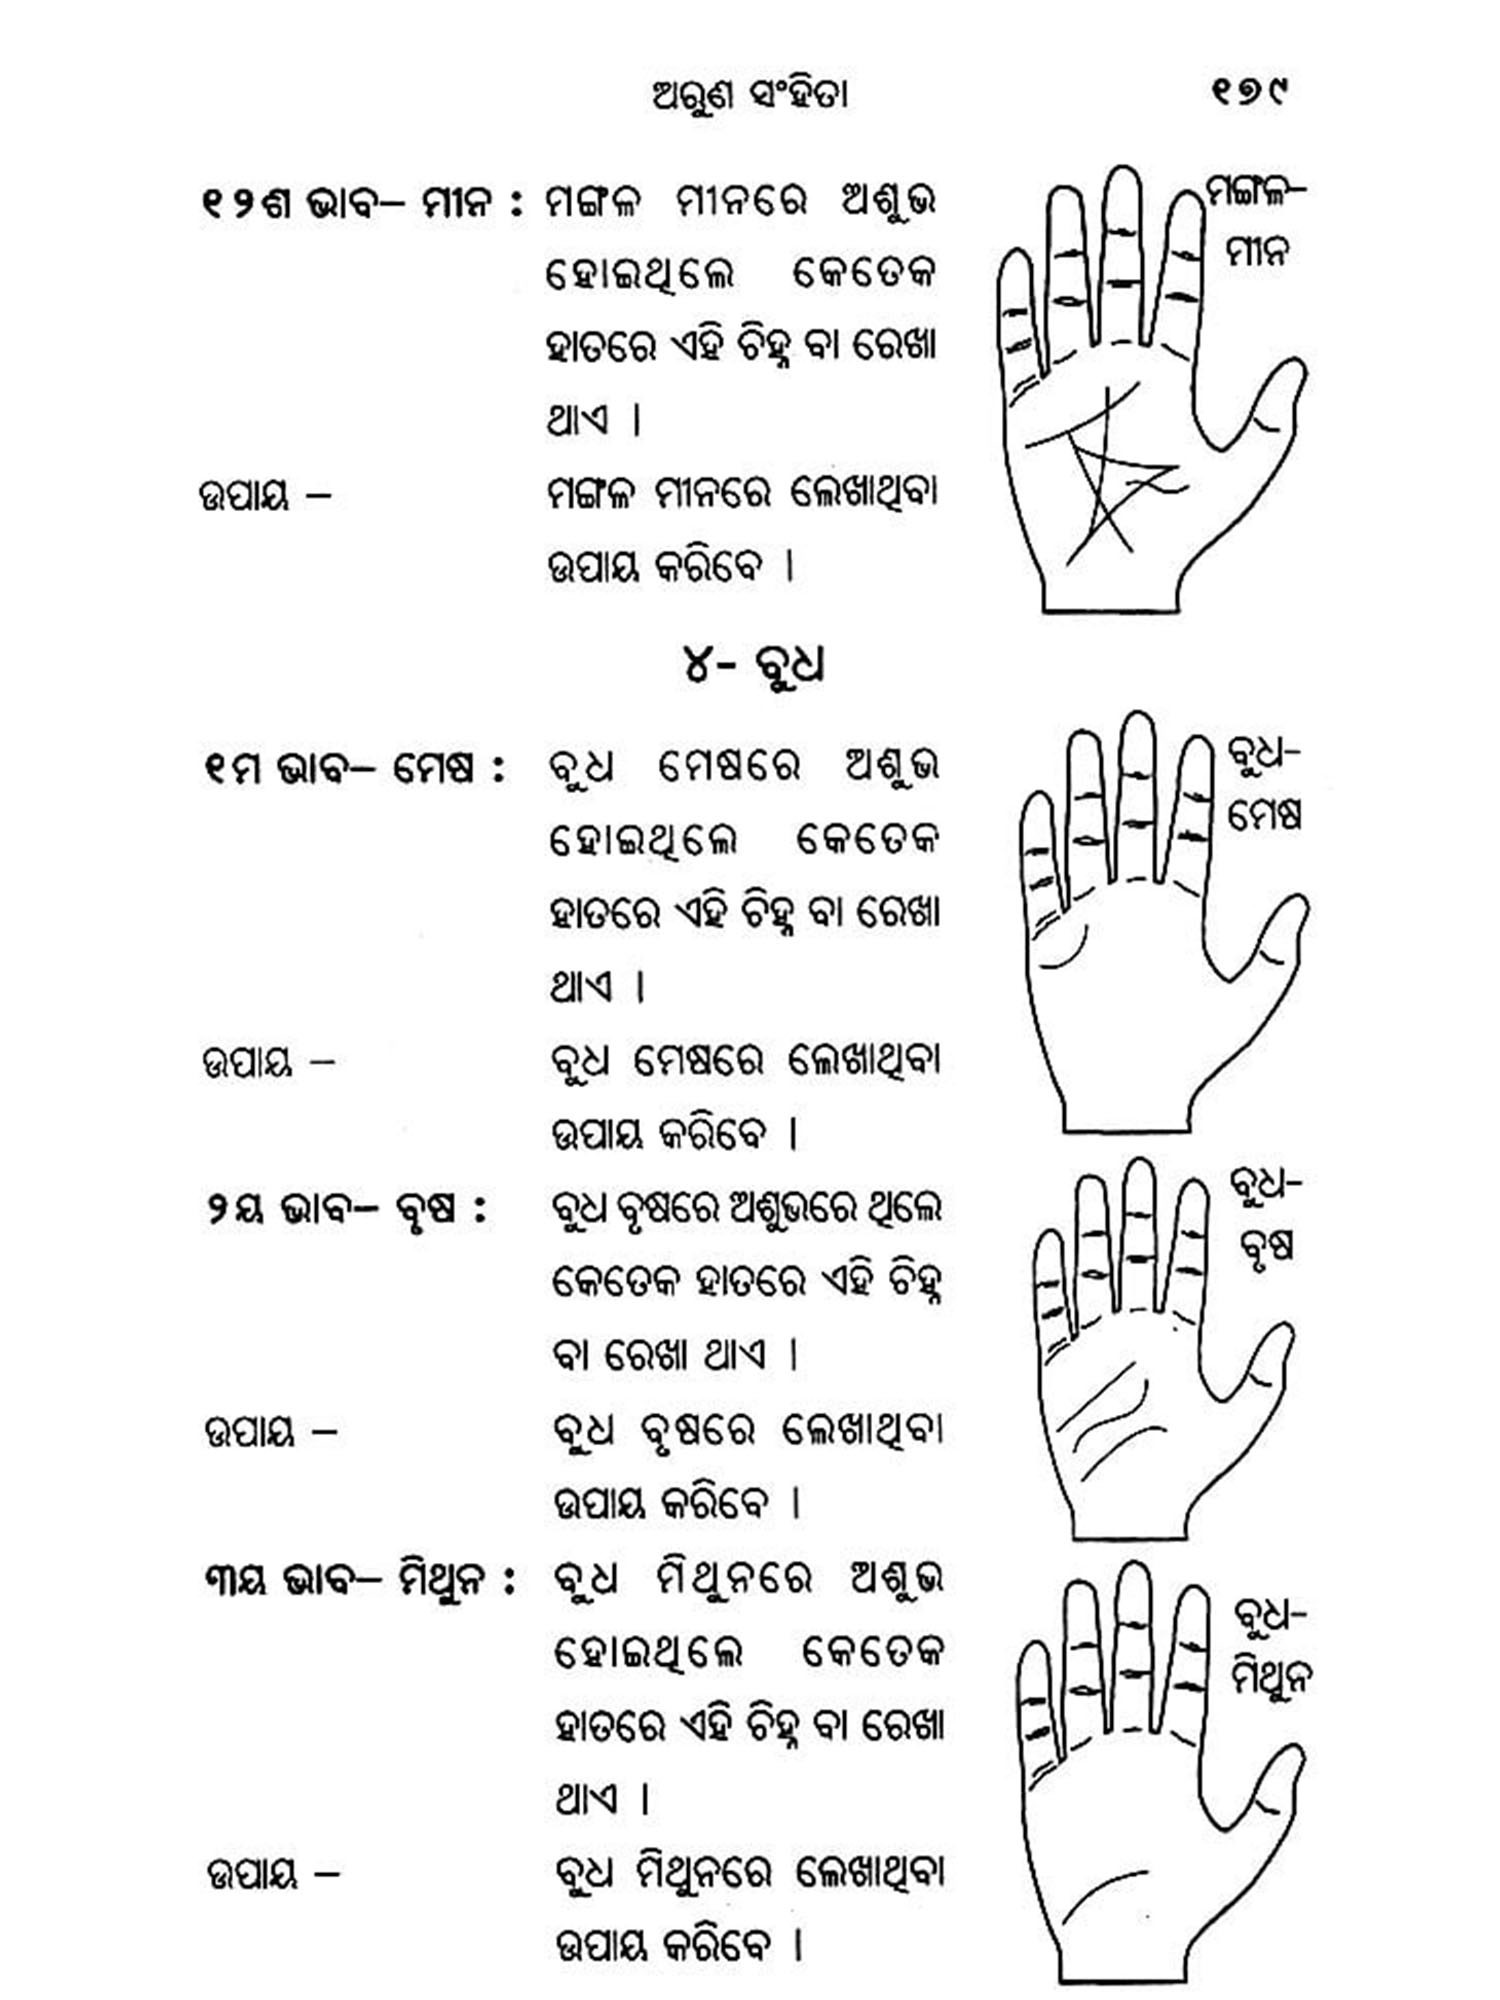 ଅରୁଣ ସଂହିତା ୧୭୯
୧୨ଶ ଭାବ– ମୀନ : ମଙ୍ଗଳ ମୀନରେ ଅଶୁଭ
ହୋଇଥିଲେ କେତେକ
ହାତରେ ଏହି ଚିହ୍ନ ବା ରେଖା
ଥାଏ ।
ଉପାୟ – ମଙ୍ଗଳ ମୀନରେ ଲେଖାଥିବା
ଉପାୟ କରିବେ ।
ମଙ୍ଗଳ–
ମୀନ
୪- ବୁଧ
୧ମ ଭାବ– ମେଷ : ବୁଧ ମେଷରେ ଅଶୁଭ
ହୋଇଥିଲେ କେତେକ
ହାତରେ ଏହି ଚିହ୍ନ ବା ରେଖା
ଥାଏ ।
ଉପାୟ – ବୁଧ ମେଷରେ ଲେଖାଥିବା
ଉପାୟ କରିବେ ।
ବୁଧ–
ମେଷ
୨ୟ ଭାବ– ବୃଷ : ବୁଧ ବୃଷରେ ଅଶୁଭରେ ଥିଲେ
କେତେକ ହାତରେ ଏହି ଚିହ୍ନ
ବା ରେଖା ଥାଏ ।
ଉପାୟ – ବୁଧ ବୃଷରେ ଲେଖାଥିବା
ଉପାୟ କରିବେ ।
ବୁଧ–
ବୃଷ
୩ୟ ଭାବ– ମିଥୁନ : ବୁଧ ମିଥୁନରେ ଅଶୁଭ
ହୋଇଥିଲେ କେତେକ
ହାତରେ ଏହି ଚିହ୍ନ ବା ରେଖା
ଥାଏ ।
ଉପାୟ – ବୁଧ ମିଥୁନରେ ଲେଖାଥିବା
ଉପାୟ କରିବେ ।
ବୁଧ–
ମିଥୁନ